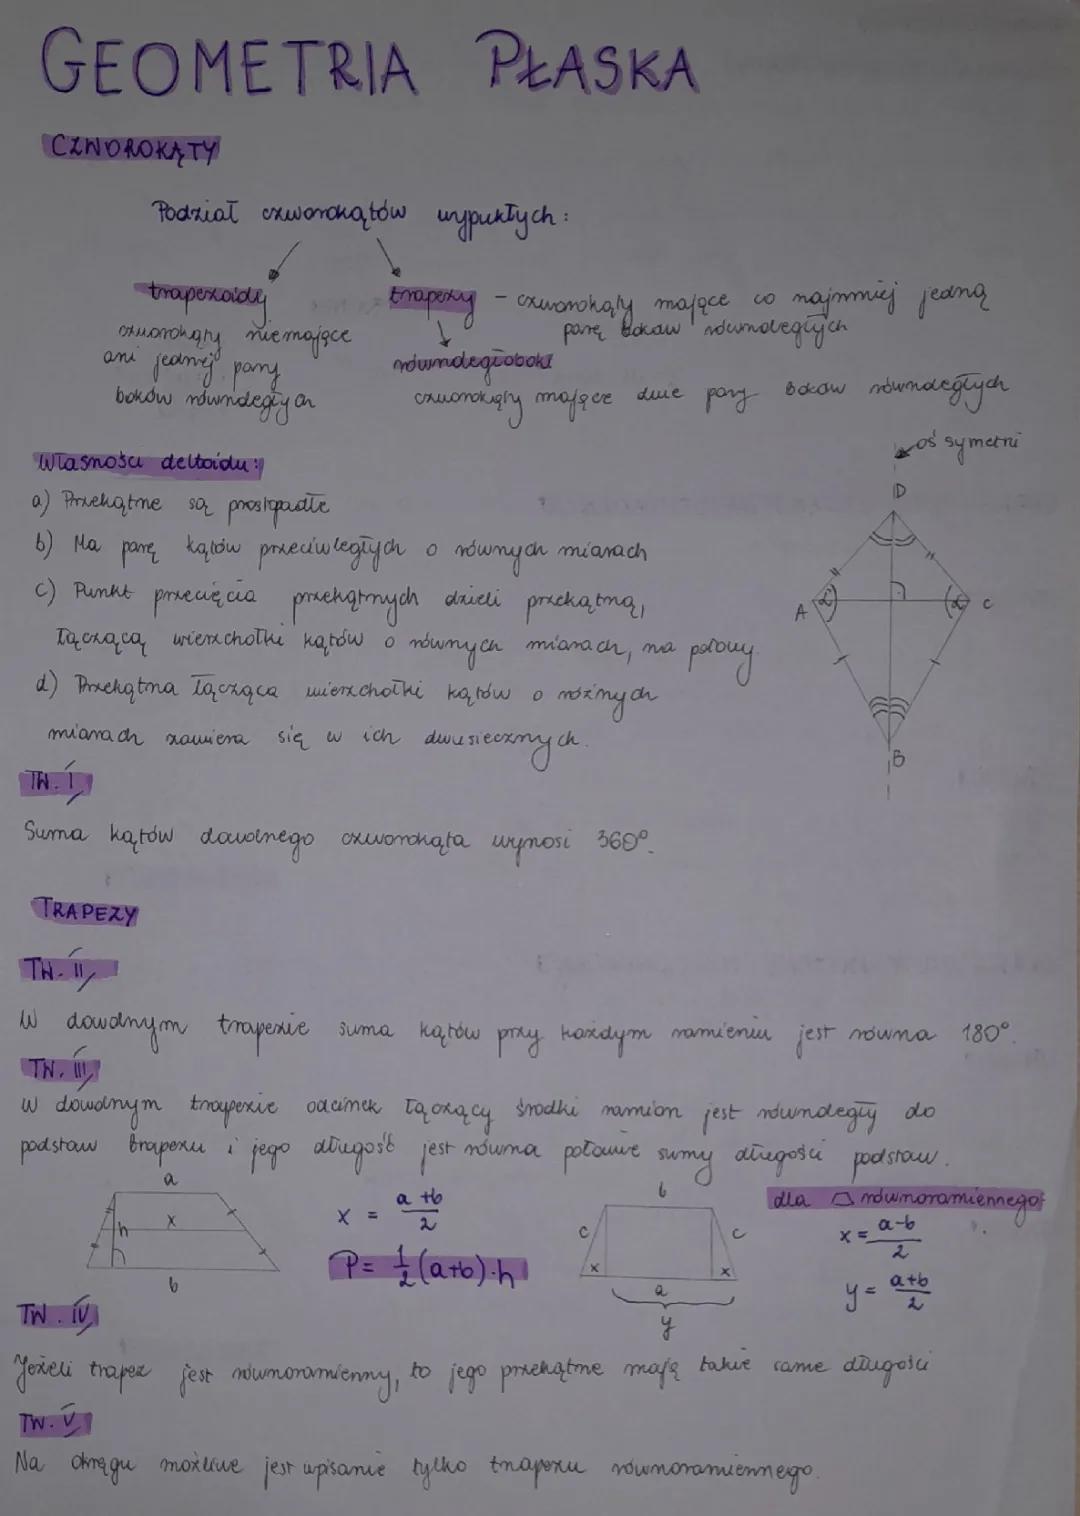 GEOMETRIA PŁASKA
CZWOROKĄTY
Podział czworokątów wypukłych:
trapezoidy
czworokąty niemające
ani jednej pary
boków równoległych
trapezy - czworokąty mające co najmniej jedną
parę boków równoległych
równoległoboki
czworokąty mające dwie pary boków równoległych
Własności deltoidu:
a) Przekątne są prostopadłe
b) Ma parę kątów przeciwległych o równych miarach
c) Punkt przecięcia przekątnych dzieli przekątną,
łączącą wierzchołki kątów o równych miarach, na połowy.
d) Przekątna łącząca wierzchołki kątów o różnych
miarach zawiera się w ich dwusiecznych.
oś symetrii
D
A α α C
B
TW. I
Suma kątów dowolnego czworokąta wynosi 360°.
TRAPEZY
TW. II
W dowolnym trapezie suma kątów przy każdym ramieniu jest równa 180°.
TW. III
W dowolnym trapezie odcinek łączący środki ramion jest równoległy do
podstaw trapezu i jego długość jest równa połowie sumy długości podstaw.
a
x
h
b
x = a+b / 2
P = 1/2 (a+b)·h
b
c c
x x
a
y
dla ⏢ równoramiennego:
x = a-b / 2
y = a+b / 2
TW. IV
Jeżeli trapez jest równoramienny, to jego przekątne mają takie same długości
TW. V
Na okręgu możliwe jest wpisanie tylko trapezu równoramiennego.